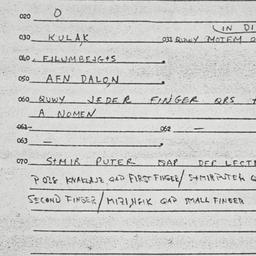 020 O
(IN DI
030 KULAK 033 QUWY MOTEM Q
040 . FILUMBERGTS .
050 AFN DALON .
060 QUWY JEDER FINGER QRS
A NOMEN
061 — 062 —
063 — .
070 STMIR PUTER QAP DER LECT
P 028 KNAKLAJZ QAD FIRST FINGER/ STMIR PUTEH Q
SECOND FINGER/ MIZINGIK QAD SMALL FINGER